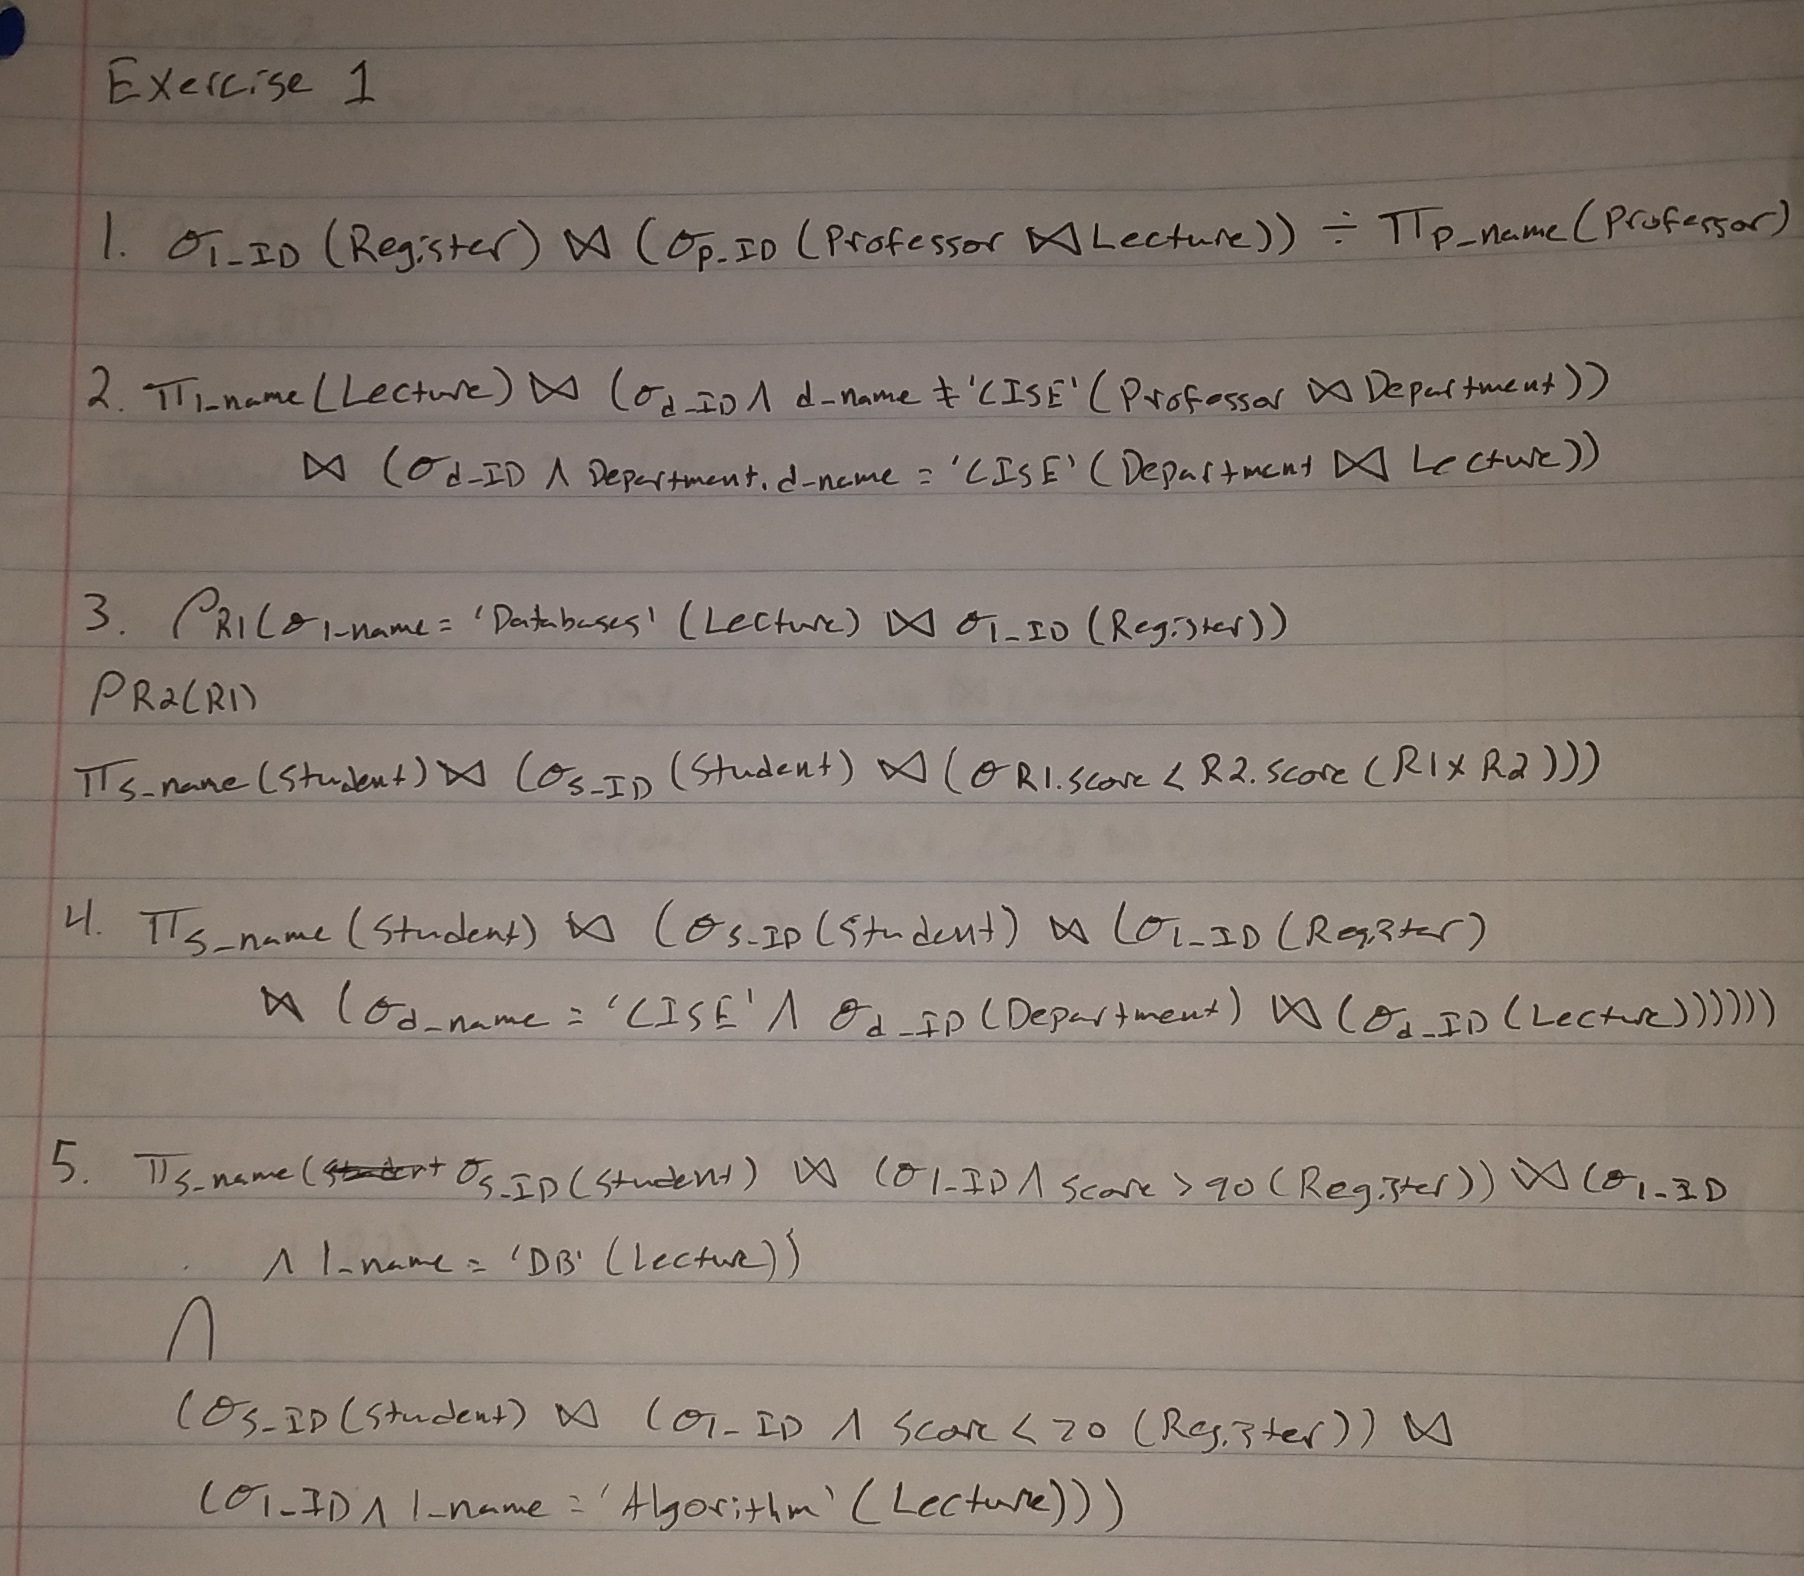 Exercise 1
1. σ l_ID (Register) ⋈ (σ p_ID (Professor ⋈ Lecture)) ÷ π p_name (Professor)
2. π l_name (Lecture) ⋈ (σ d_ID ∧ d_name ≠ 'CISE' (Professor ⋈ Department))
⋈ (σ d_ID ∧ Department.d_name = 'CISE' (Department ⋈ Lecture))
3. ρ R1 (σ l_name = 'Databases' (Lecture) ⋈ σ l_ID (Register))
ρ R2 (R1)
π s_name (Student) ⋈ (σ s_ID (Student) ⋈ (σ R1.score < R2.score (R1 x R2)))
4. π s_name (Student) ⋈ (σ s_ID (Student) ⋈ (σ l_ID (Register)
⋈ (σ d_name = 'CISE' ∧ σ d_ID (Department) ⋈ (σ d_ID (Lecture))))))
5. π s_name (σ s_ID (Student) ⋈ (σ l_ID ∧ score > 90 (Register)) ⋈ (σ l_ID
∧ l_name = 'DB' (Lecture))
∩
(σ s_ID (Student) ⋈ (σ l_ID ∧ score < 70 (Register)) ⋈
(σ l_ID ∧ l_name = 'Algorithm' (Lecture)))